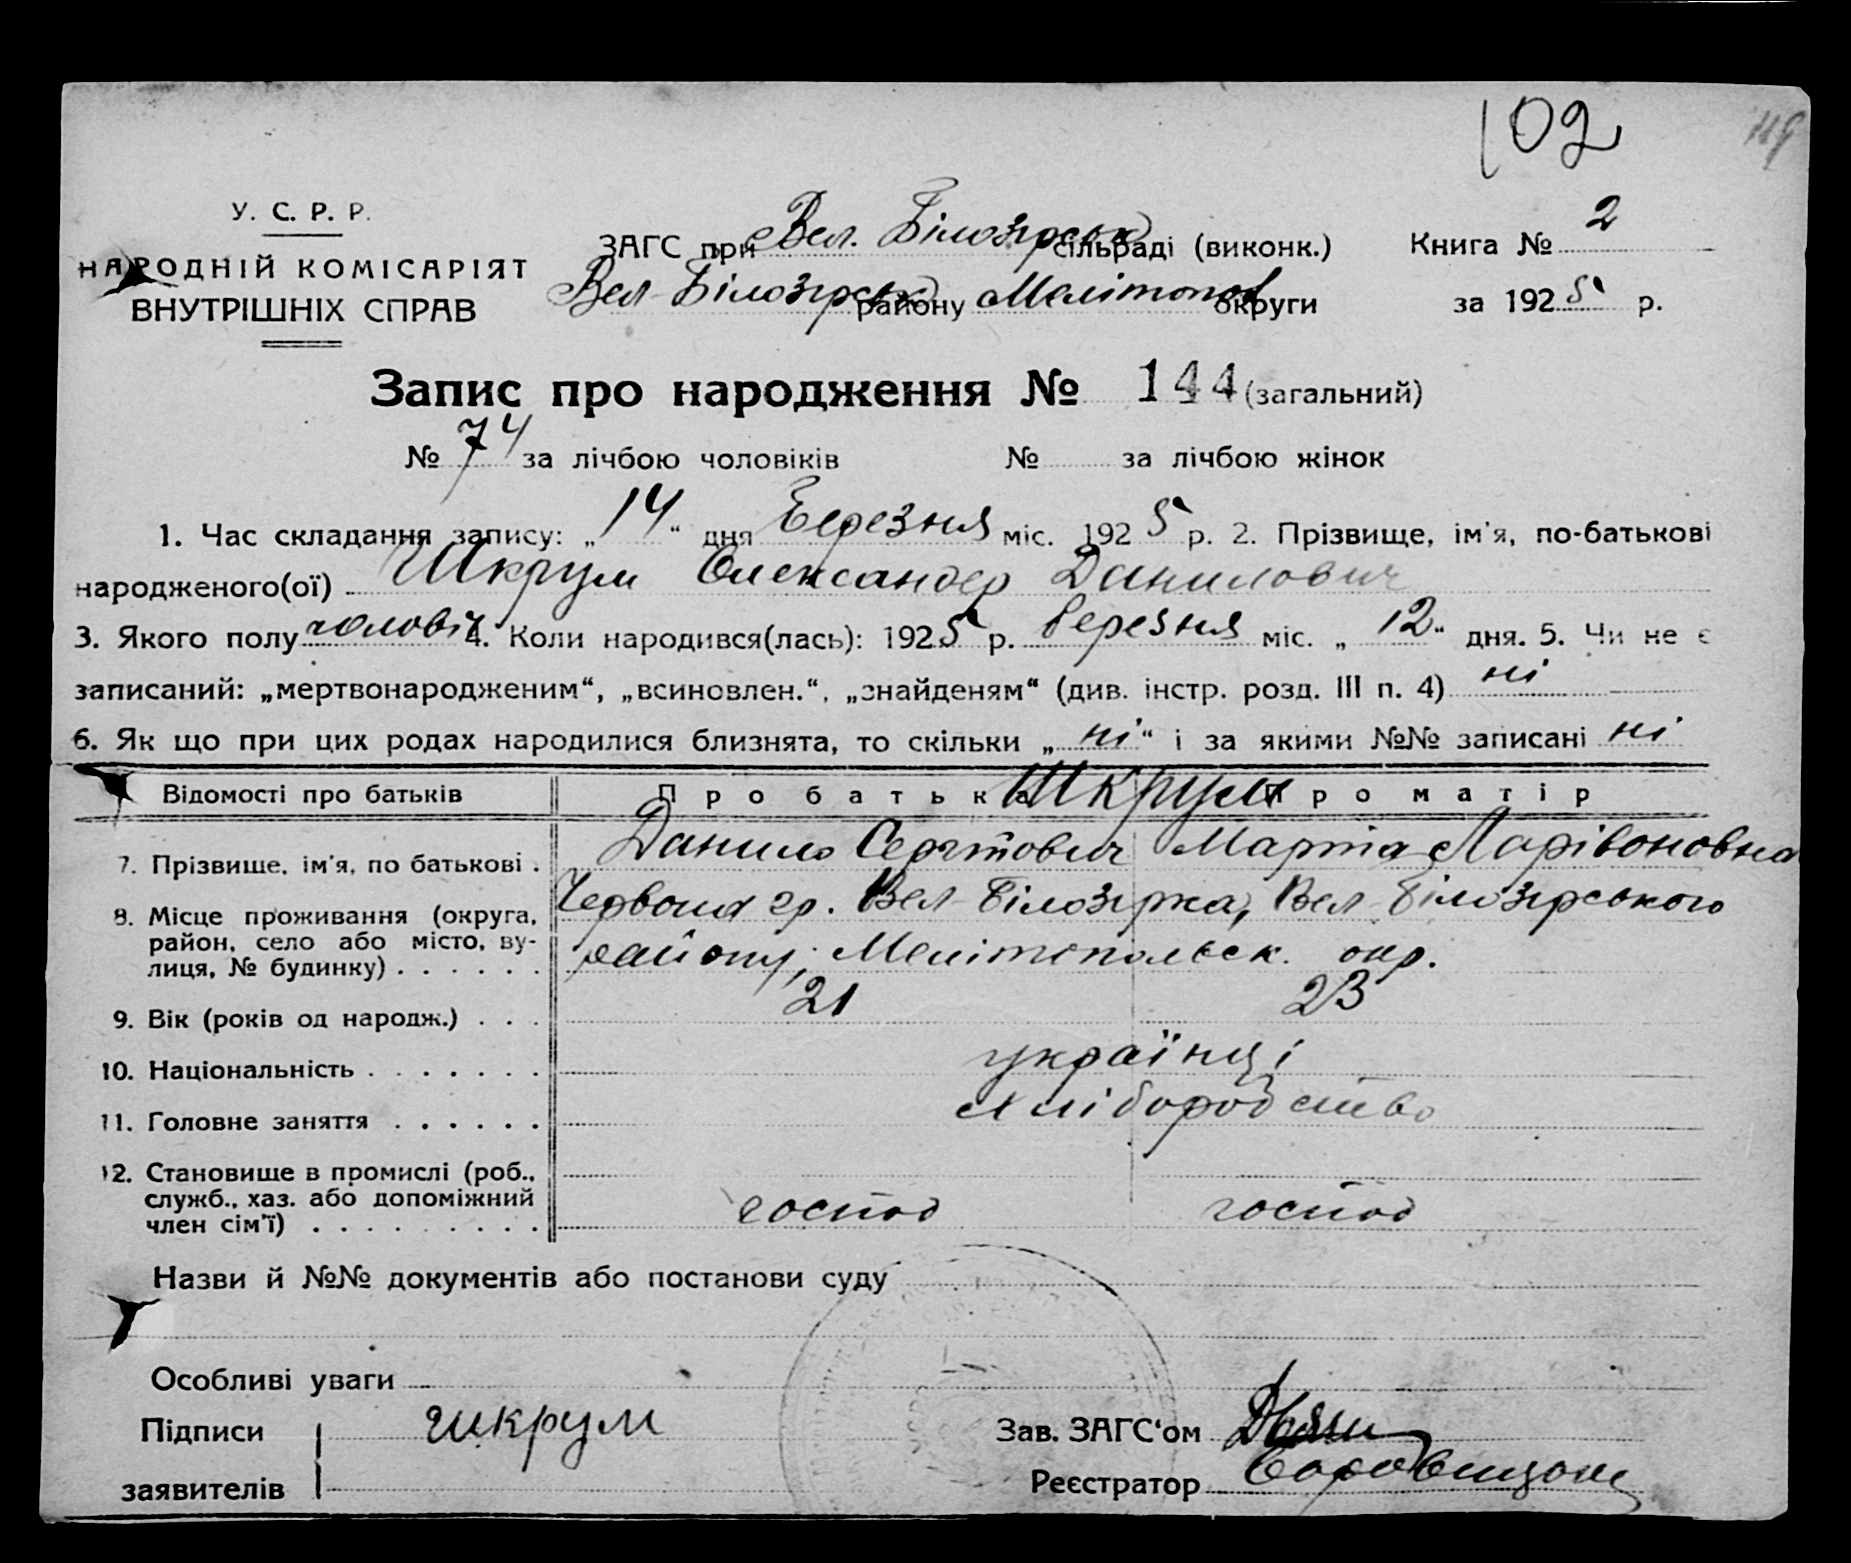 102
119
У. С. Р. Р.
НАРОДНІЙ КОМІСАРІЯТ
ВНУТРІШНІХ СПРАВ
ЗАГС при Вел. Білозірськ сільраді (виконк.)
Вел-Білозірськ району Мелітопол округи
Книга № 2
за 1925 р.
Запис про народження № 144 (загальний)
№ 74 за лічбою чоловіків № за лічбою жінок
1. Час складання запису: „14“ дня Березня міс. 1925 р. 2. Прізвище, ім'я, по-батькові
народженого(ої) Шкрум Олександер Данилович
3. Якого полу чоловіч 4. Коли народився(лась): 1925 р. березня міс. „12“ дня. 5. Чи не є
записаний: „мертвонародженим“, „всиновлен.“, „знайденям“ (див. інстр. розд. III п. 4) ні
6. Як що при цих родах народилися близнята, то скільки „ні“ і за якими №№ записані ні
Відомості про батьків Про батька Шкрум Про матір
7. Прізвище, ім'я, по батькові . Данило Марта Ларівоновна
8. Місце проживання (округа, район, село або місто, вулиця, № будинку) . . . . . . Червона гр. Вел-Білозірка, Вел-Білозірського
району, Мелітопольск. окр.
9. Вік (років од народж.) . . . 21 23
10. Національність . . . . . . . українці
11. Головне заняття . . . . . . хліборобство
12. Становище в промислі (роб.,
служб., хаз. або допоміжний
член сім'ї) . . . . . . . . . господ господ
Назви й №№ документів або постанови суду
Особливі уваги
Підписи
заявителів
Шкрум
Зав. ЗАГС‘ом
Реєстратор